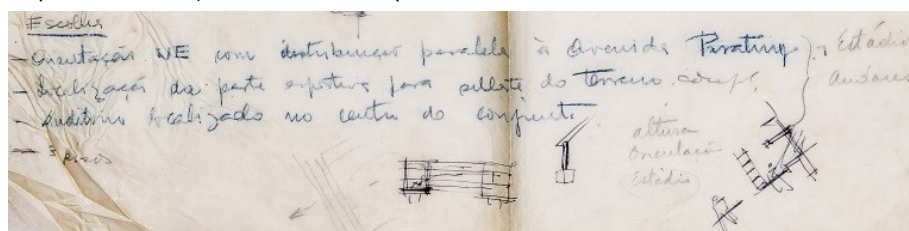 Escolha
- Orientação NE com distribuição paralela à Avenida
- Localização da parte esportiva para do terreno
- Auditório localizado no centro do conjunto
- 3 pisos
Estádio
andares
altura
Orientação
Estádio